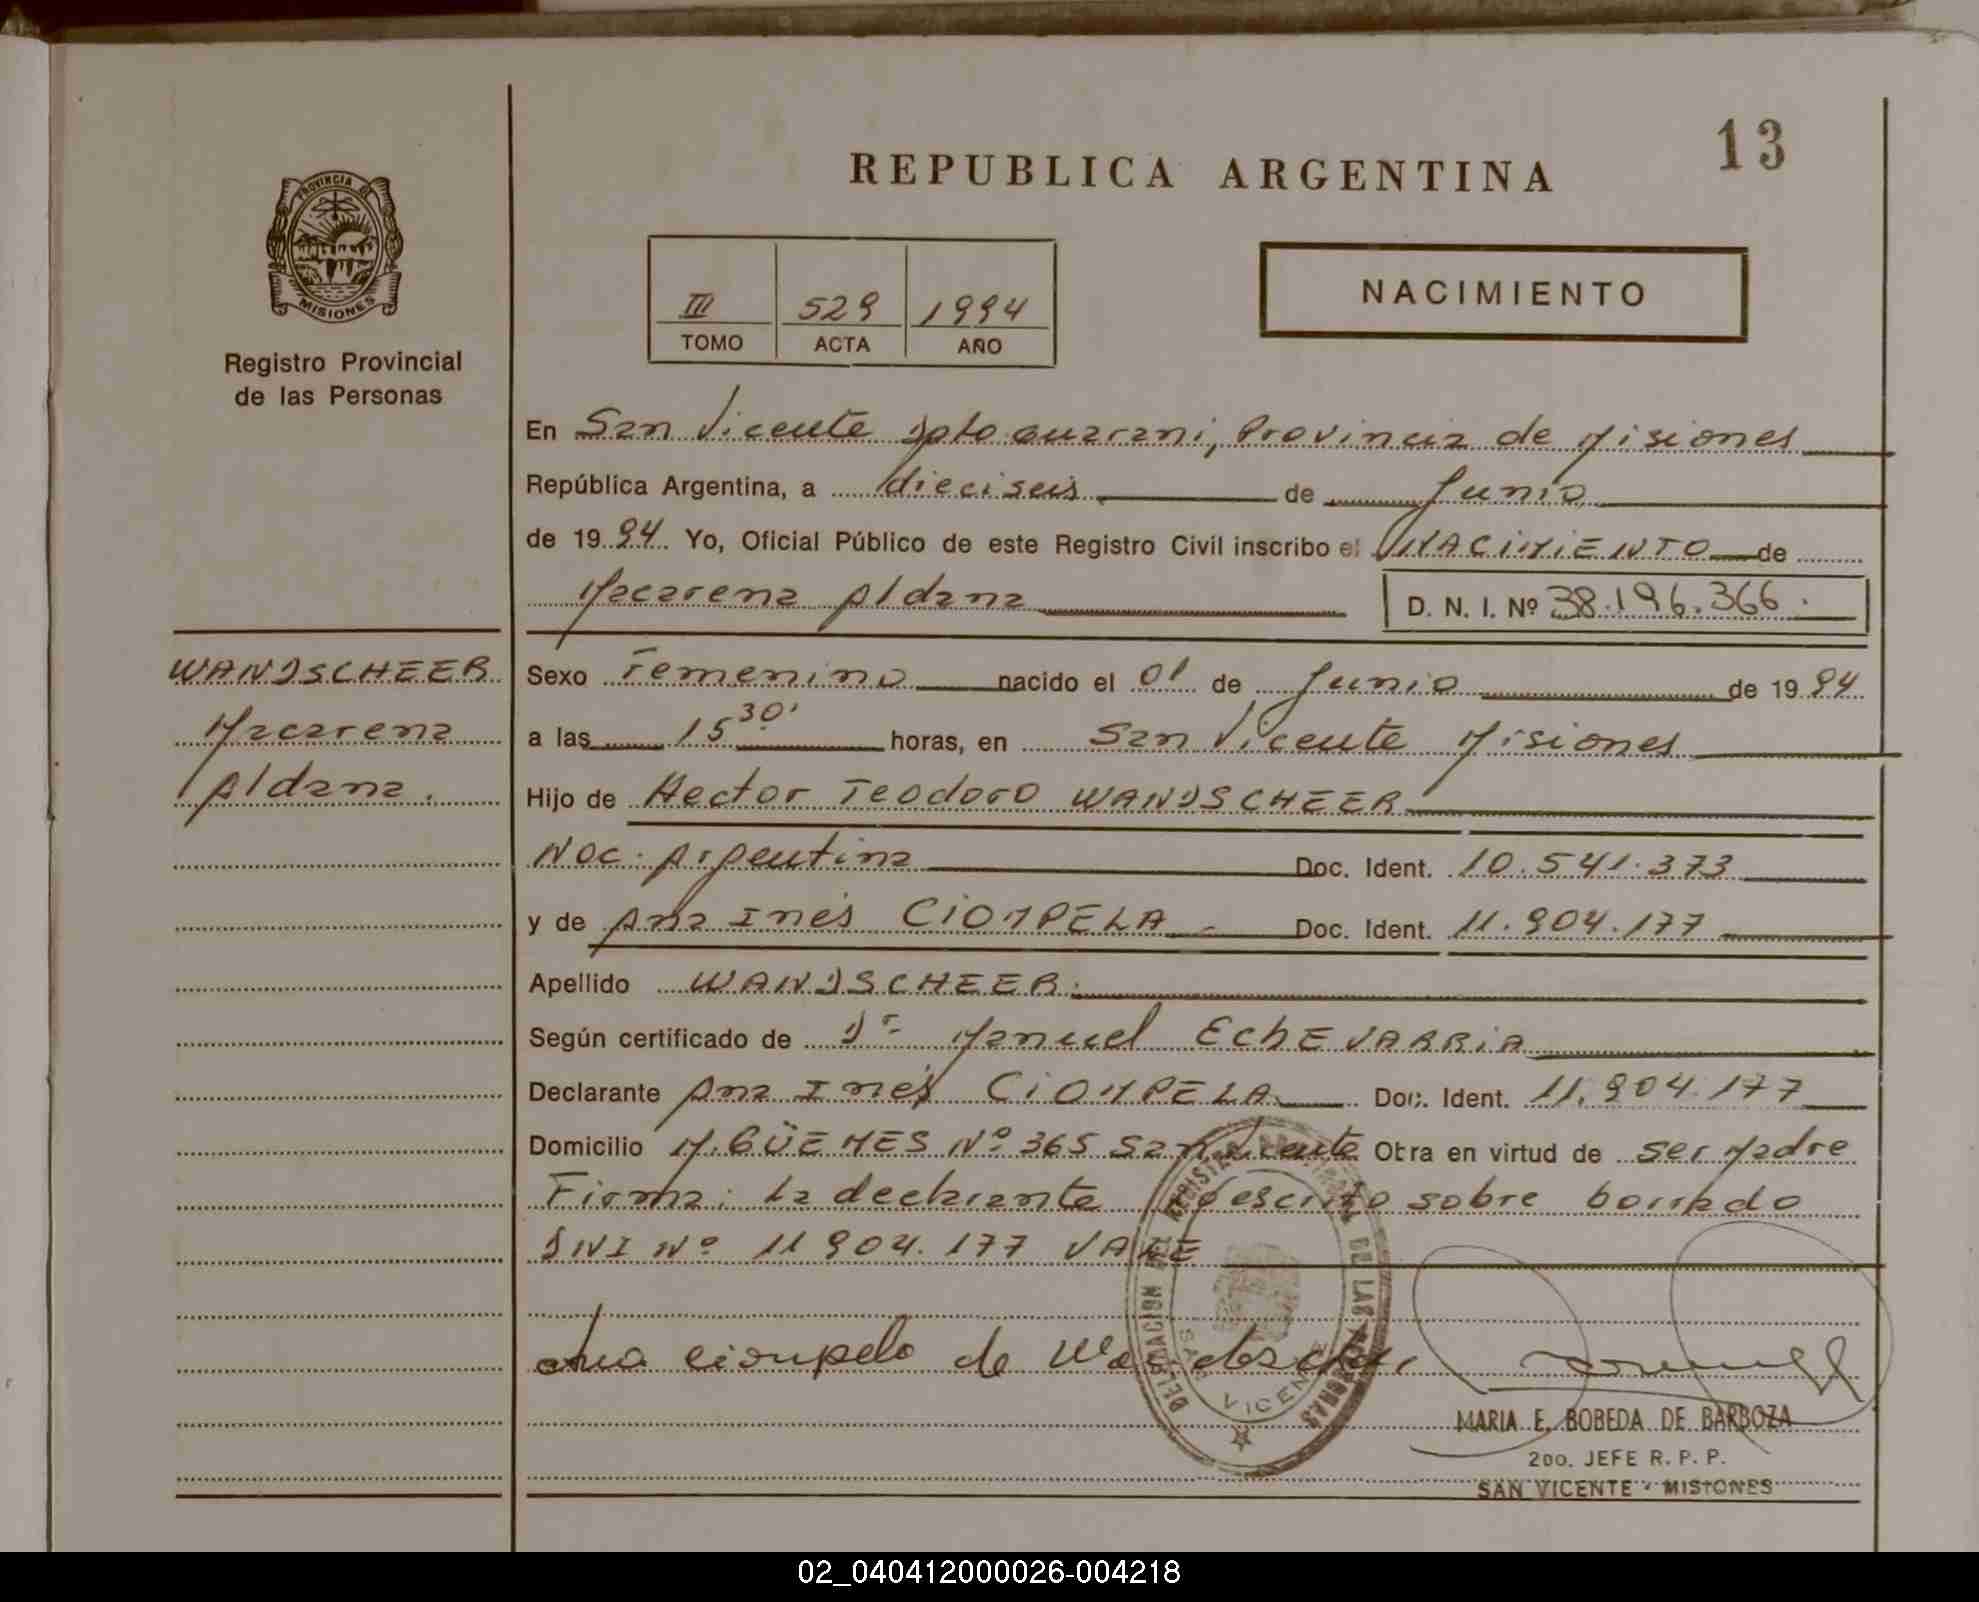 13
REPUBLICA ARGENTINA
PROVINCIA DE
MISIONES
Registro Provincial
de las Personas
III 529 1994
TOMO ACTA AÑO
NACIMIENTO
En San Vicente Dpto Guarani, Provincia de Misiones
República Argentina, a dieciseis de Junio
de 1994 Yo, Oficial Público de este Registro Civil inscribo el NACIMIENTO de
Macarena Aldana D. N. I. Nº 38.196.366.
WANDSCHEER
Macarena
Aldana.
Sexo Femenino nacido el 01 de Junio de 1994
a las 15 30' horas, en San Vicente Misiones
Hijo de Hector Teodoro WANDSCHEER
Nac. Argentina Doc. Ident. 10.541.373
y de Ana Inés CIOMPELA Doc. Ident. 11.904.177
Apellido WANDSCHEER.
Según certificado de Dr Manuel EChEVARRIA
Declarante Ana Inés CIOMPELA Doc. Ident. 11.904.177
Domicilio M. GÜEMES Nº 365 San Vicente Obra en virtud de ser Madre
Firma: La declarante escrito sobre borrado
DNI Nº 11904.177 VALE
Ana ciompela de Wandscheer
DELEGACION DEL REGISTRO PROVINCIAL DE LAS PERSONAS
SAN VICENTE
MARIA E. BOBEDA DE BARBOZA
2DO. JEFE R. P. P.
SAN VICENTE - MISIONES
02_040412000026-004218